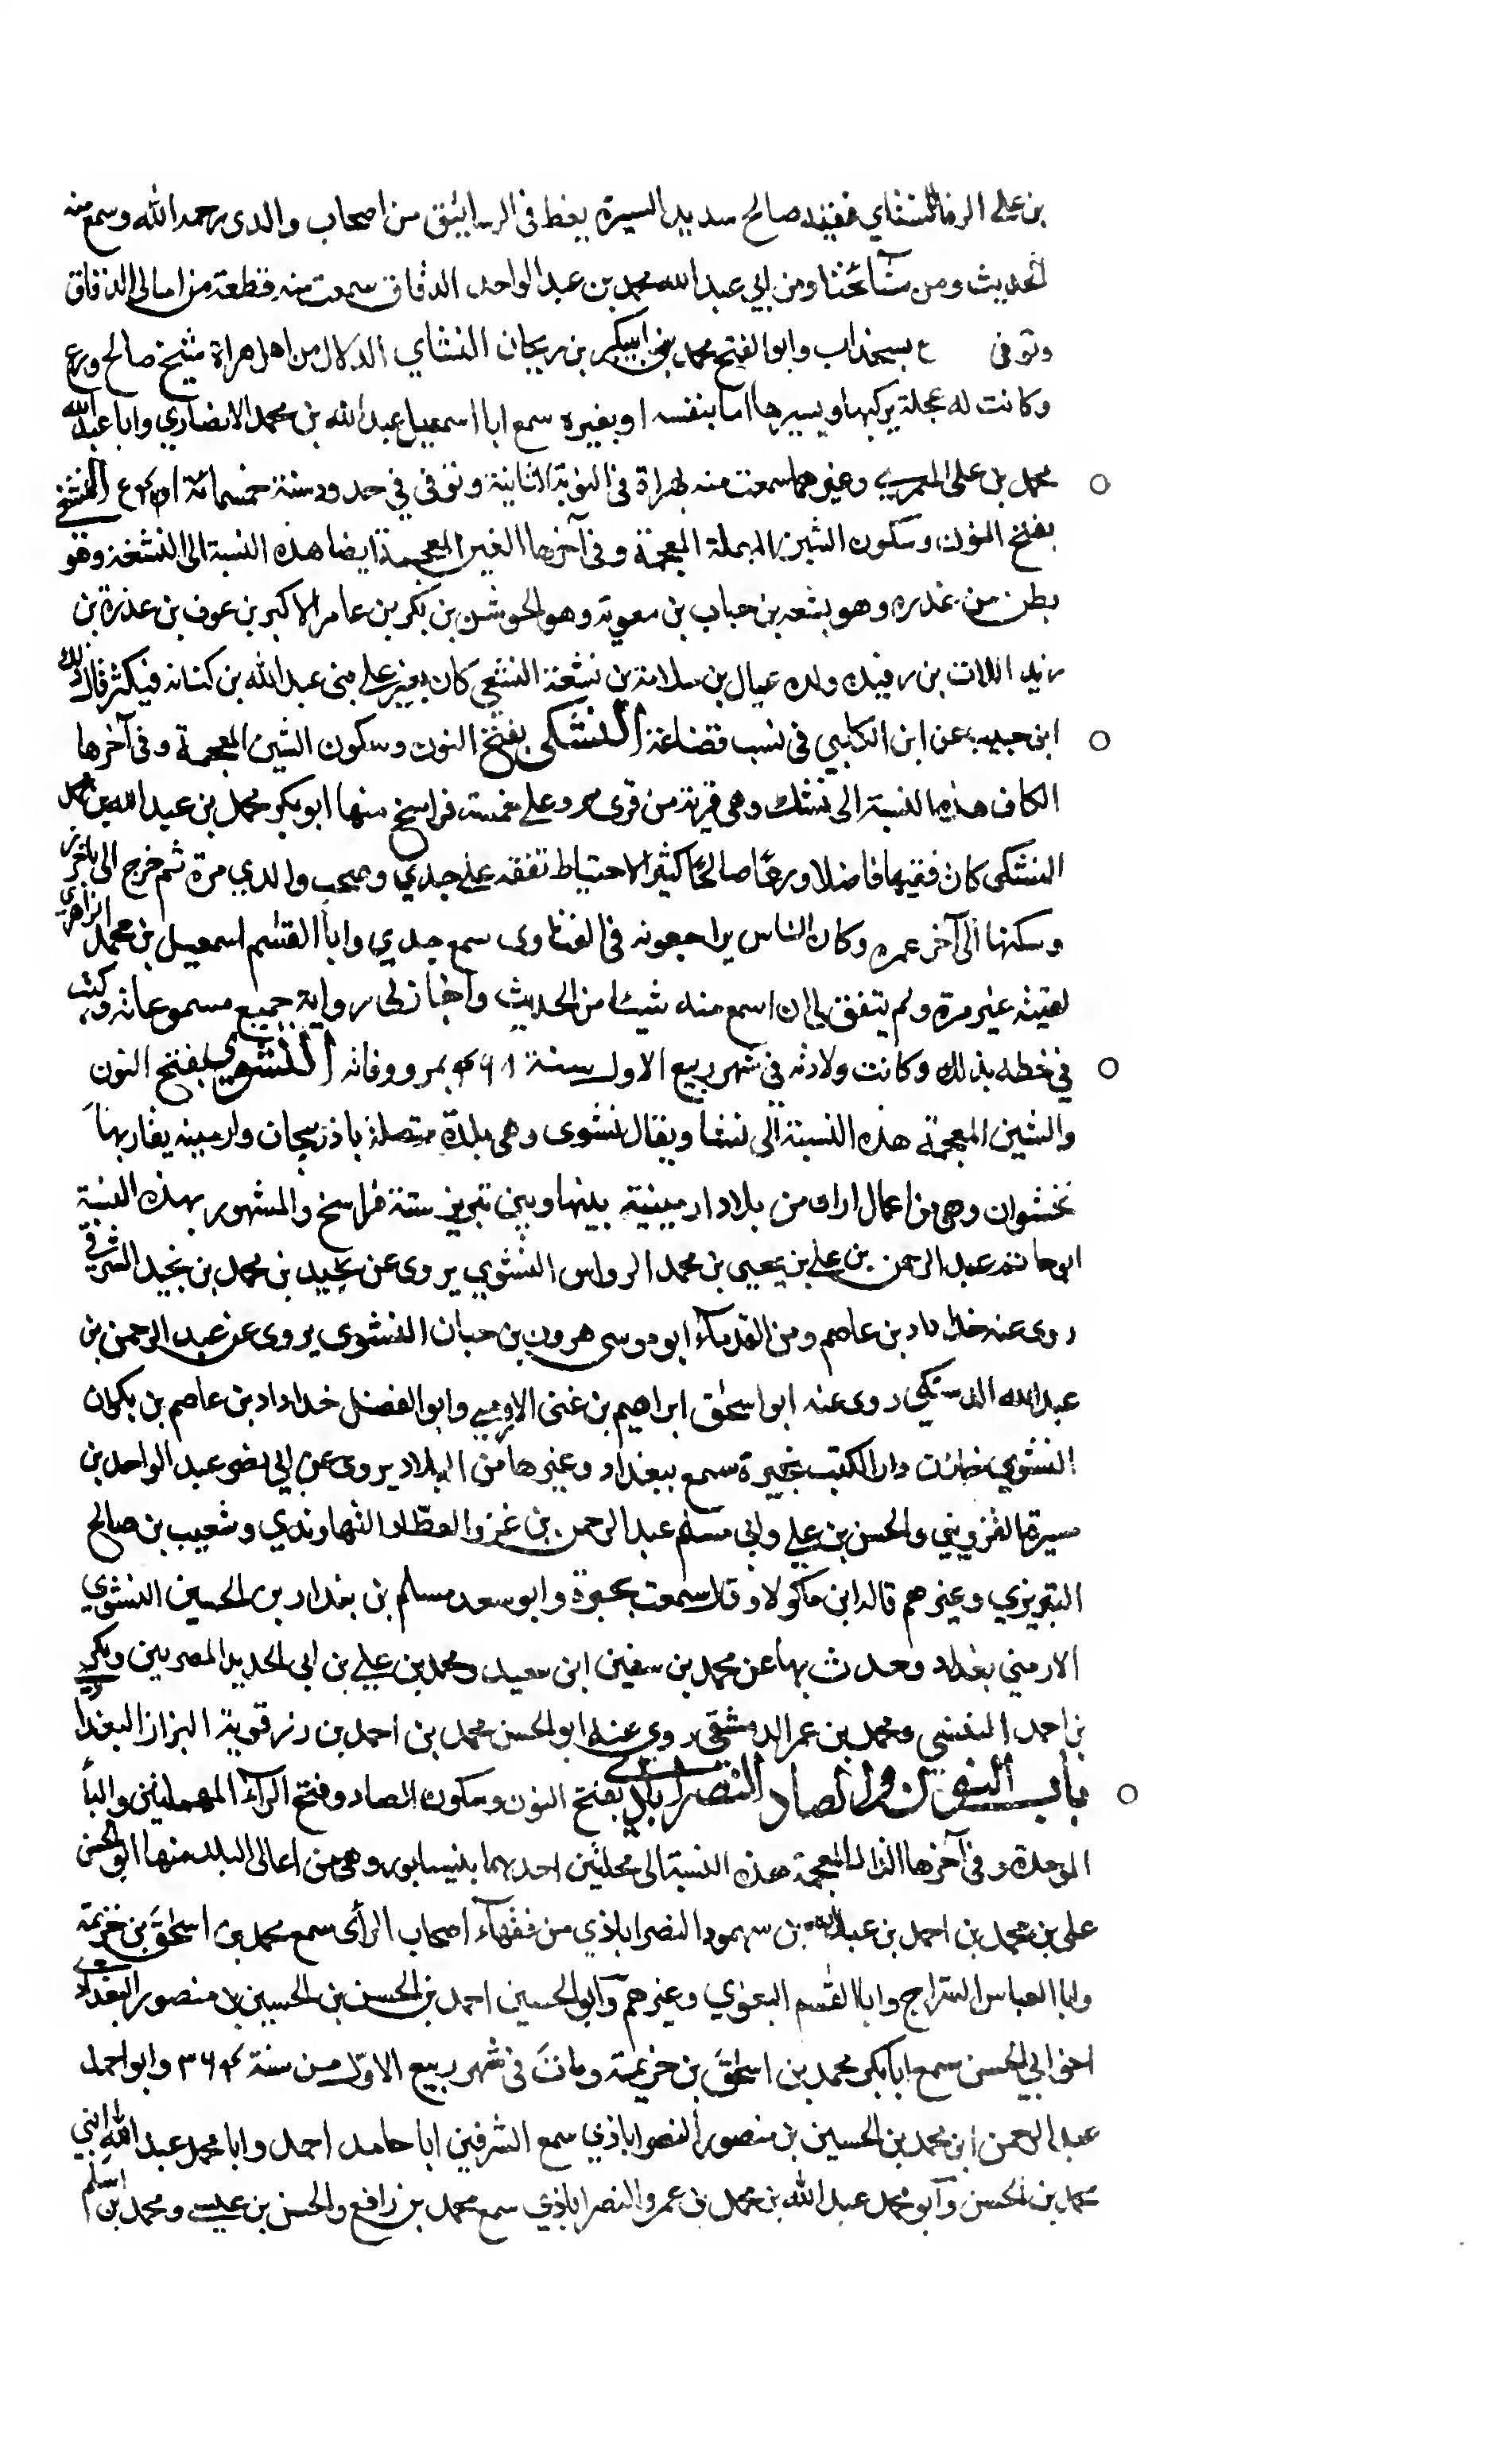 بن علي الرفا النشائي فقيه صالح سديد السيرة يعظ في الرساتيق من اصحاب والدي رحمه الله وسمع منه
الحديث ومن مشائخنا ومن ابي عبد الله محمد بن عبد الواحد الدقاق سمعت منه قطعة من امالي الدقاق
وتوفي بسنجذاب وابو الفتح محمد بن ابي بكر بن ريحان النشاي الدلال من اهل هراة شيخ صالح ورع
وكانت له عجلة يركبها ويسيرها اما بنفسه او بغيره سمع ابا اسمعيل عبد الله بن محمد الانصاري وابا عبد الله
محمد بن علي العمري وغيرهما سمعت منه بهراة في النوبة الثانية وتوفي في حدود سنة خمسمائة النشغي
بفتح النون وسكون الشين المهملة المعجمة وفي آخرها الغين المعجمة ايضا هذه النسبة الى النشغة وهو
بطن من عذره وهو نشغه بن حباب بن معوية وهو الحوشن بن بكر بن عامر الاكبر بن عوف بن عذرة بن
زيد اللات بن رفيدة ولده عيال بن سلامة بن نشغة النشغي كان يغير على بني عبد الله بن كنانه فيكثر قال ذلك
ابن حبيب عن ابن الكلبي في نسب قضاعة النشكي بفتح النون وسكون الشين المعجمة وفي آخرها
الكاف هذه النسبة الى نشك وهي قرية من قرى مرو على خمسة فراسخ منها ابو بكر محمد بن عبد الله بن محمد
النشكي كان فقيها فاضلا ورعا صالحا كثير الاحتياط تفقه على جدي وصحب والدي مرة ثم خرج الى
وسكنها الى آخر عمره وكان الناس يراجعونه في الفتاوى سمع جدي وابا القسم اسمعيل بن محمد الزاهري
لقيته غير مرة ولم يتفق لي ان اسمع منه شيئا من الحديث واجاز لي رواية جميع مسموعاته وكتب
في خطه بذلك وكانت ولادته في شهر ربيع الاول سنة ۴۶۱ بمرو ووفاته النشوي بفتح النون
والشين المعجمة هذه النسبة الى نشا ويقال نشوى وهي بلدة متصلة باذربيجان وارمينيه يقاربها
نخشوان وهي من اعمال اران من بلاد ارمينية بينها وبين تبريز ستة فراسخ والمشهور بهذه النسبة
ابو حاتم عبد الرحمن بن علي بن يحيى بن محمد الرواس النشوي يروى عن بن محمد بن نجيد
روى عنه خداداد بن عاصم ومن القدماء ابو موسى هرون بن حبان النشوى يروى عن عبد الرحمن بن
عبد الله الدستكي روى عنه ابو اسحق ابراهيم بن غنى الاوسي وابو الفضل خداداد بن عاصم بن بكران
النشوي خازن دار الكتب بجنزة سمع ببغداد وغيرها من البلاد يروى عن ابي نصر عبد الواحد بن
مسيرة القزويني والحسن بن علي وابي مسلم عبد الرحمن بن غزو العطار النهاوندي وشعيب بن صالح
التبريزي وغيرهم قال ابن ماكولا وقد سمعت بجنزة وابو سعد مسلم بن بغداد بن الحسين النشوي
الارمني بغداد وحدث بها عن محمد بن سفين ابن سعيد ومحمد بن علي بن ابي الحديد المصريين وبكر
بن احمد التنيسي ومحمد بن عمر الدمشقي روى عنه ابو الحسن محمد بن احمد بن رزقوية البزاز البغدادي
باب النون والصاد النصراباذي بفتح النون وسكون الصاد وفتح الراء المهملتين والباء
الموحدة وفي آخرها الذال المعجمة هذه النسبة الى محلتين احديهما بنيسابور وهي من اعالي البلد منها ابو الحسن
علي بن محمد بن احمد بن عبد الله بن سهمود النصراباذي من فقهاء اصحاب الرأى سمع محمد بن اسحق بن خزيمة
وابا العباس السراج وابا القسم البغوي وغيرهم وابو الحسين احمد بن الحسن بن الحسين بن منصور البغدادي
اخو ابي الحسن سمع ابا بكر محمد بن اسحق بن خزيمة ومات في شهر ربيع الاول من سنة ۳۶۴ وابو احمد
عبد الرحمن ابن محمد بن الحسين بن منصور النصراباذي سمع الشرقيين ابا حامد احمد وابا محمد عبد الله ابني
محمد بن الحسن وابو محمد عبد الله بن محمد بن عمرو النصراباذي سمع محمد بن رافع والحسن بن عيسى ومحمد بن اسلم